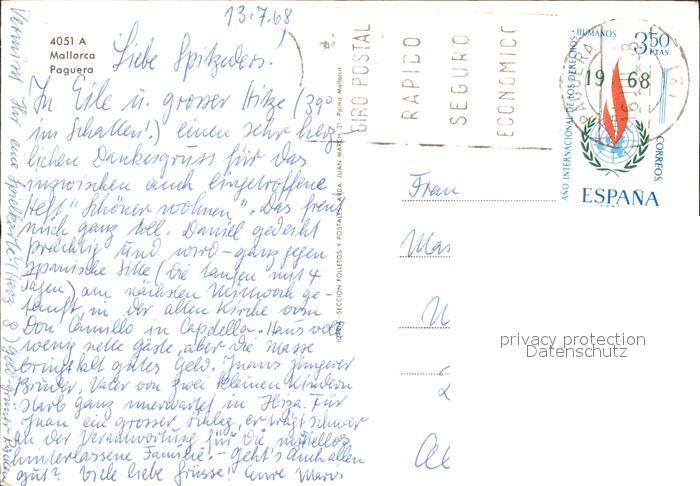 13.7.68
4051/A
Mallorca
Paguera
Liebe Spitzeders!
In Eile u. grosser Hitze (39°
im Schatten!) einen sehr herz-
lichen Dankesgruss für das
inzwischen auch eingetroffene
Heft "Schöner wohnen". Das freut
mich ganz toll. Daniel gedeiht
prächtig und wird - ganz gegen
spanische Sitte (die taufen mit 4
Tagen) am nächsten Mittwoch ge-
tauft, in der alten Kirche vom
Don Camillo in Capdella. Haus voll
wenig nette Gäste, aber die Masse
bringt halt gutes Geld. Juans jüngerer
Bruder, Vater von zwei kleinen Kindern
starb ganz unerwartet in Ibiza. Für
Juan ein grosser Schlag, er trägt schwer
an der Verantwortung für die mittellos
hinterlassene Familie. - Geht's Euch allen
gut? Viele liebe Grüsse! Eure
Vermisst Ihr eine
GIRO POSTAL
RAPIDO
SEGURO
ECONOMICO
PAGUERA
AÑO INTERNACIONAL DE LOS DERECHOS HUMANOS
3,50
PTAS
1968
CORREOS
ESPAÑA
SECCION FOLLETOS Y POSTALES
JUAN MARCH, 31 - Palma Mallorca
Frau
privacy protection
Datenschutz